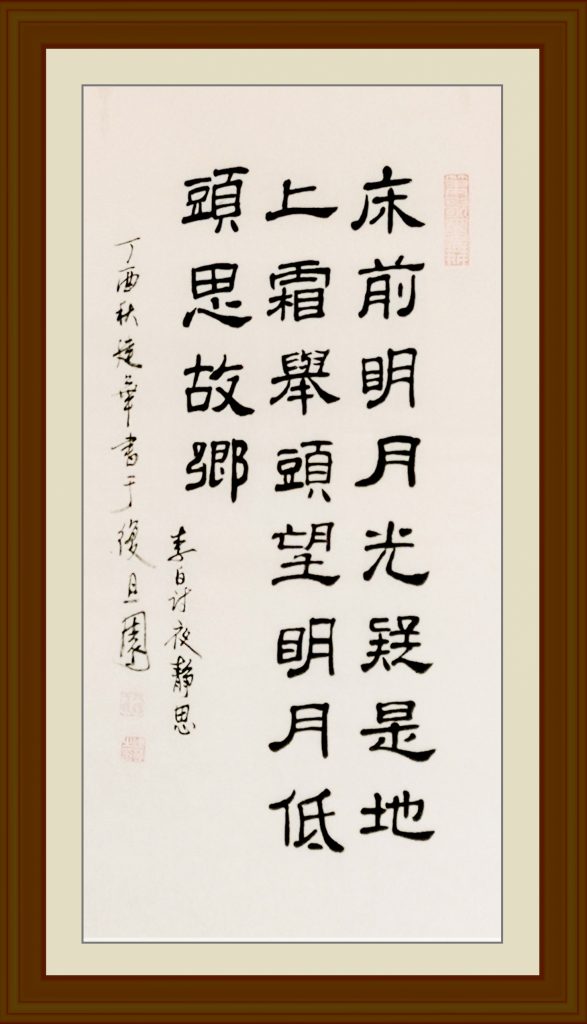 床前明月光疑是地
上霜舉頭望明月低
頭思故鄉
李白诗夜靜思
丁酉秋華書于復旦園